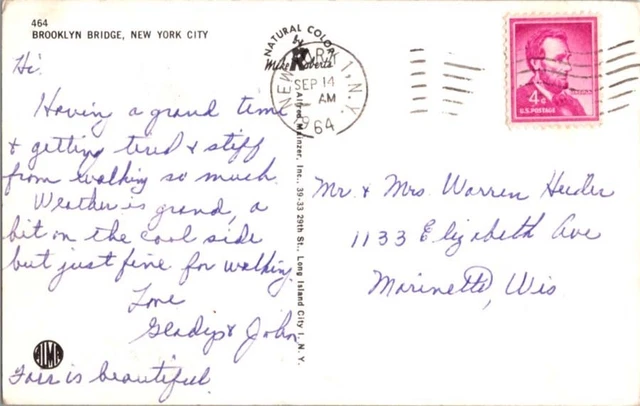 464
BROOKLYN BRIDGE, NEW YORK CITY
NATURAL COLOR
by
Mike Roberts
NEW YORK 1, N.Y.
SEP 14
AM
1964
4¢
U.S. POSTAGE
Hi.
Having a grand time
& getting tired & stiff
from walking so much.
Weather is grand, a
bit on the cool side
but just fine for walking.
Love
Gladys & John
Fair is beautiful.
Alfred Mainzer, Inc., 39-33 29th St., Long Island City 1, N. Y.
Mr. & Mrs. Warren
1133 Elizabeth Ave
Marinette, Wis